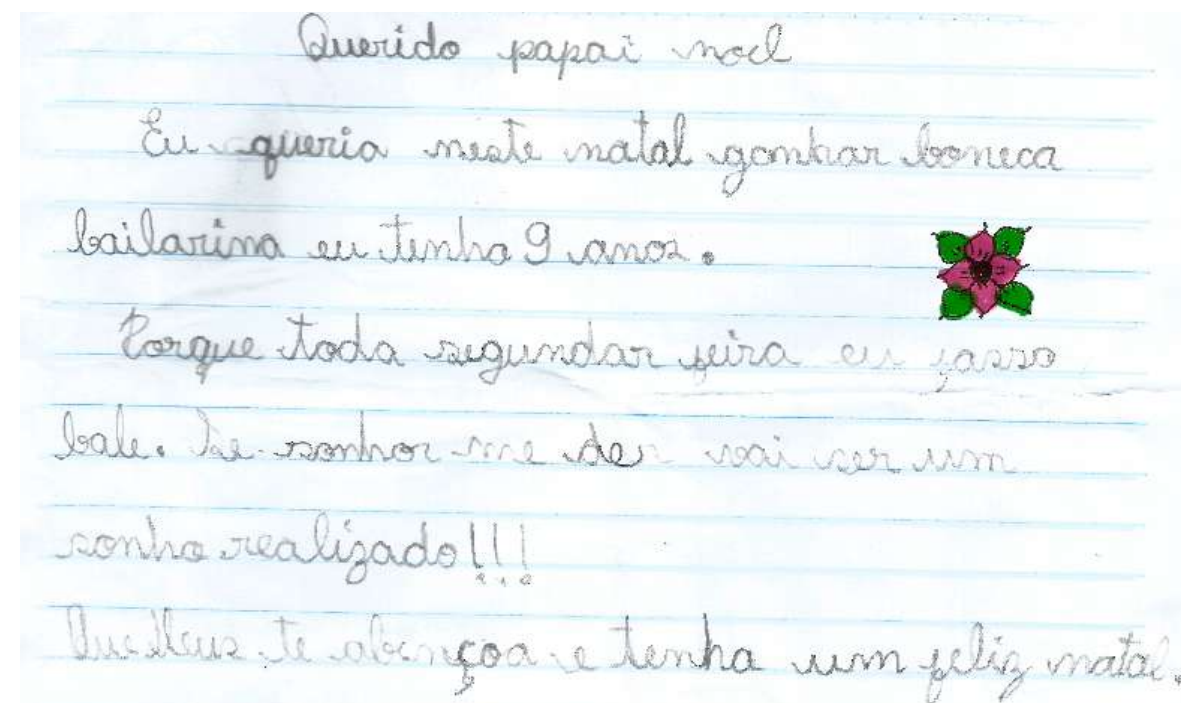 Querido papai noel
Eu queria neste natal gonhar boneca
bailarina eu tenho 9 anos.
Porque toda segundar feira eu fasso
bale. Se sonhor me der vai ser um
sonho realizado!!!
Que Deus te abençoa e tenha um feliz natal.